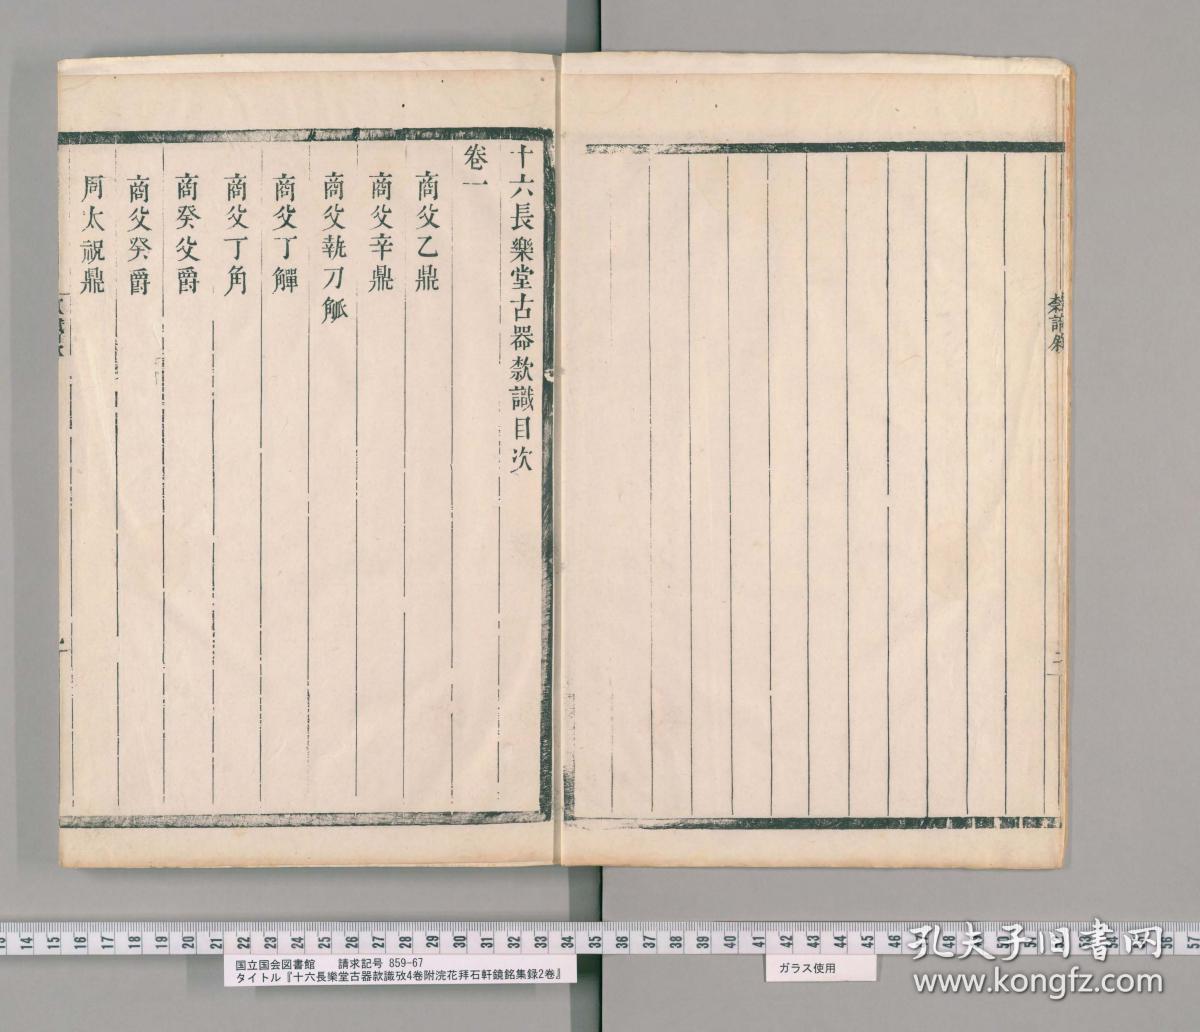 十六長樂堂古器款識目次
卷一
商父乙鼎
商父辛鼎
商父執刀觚
商父丁觶
商父丁角
商癸父爵
商父癸爵
周太祝鼎
二
13 14 15 16 17 18 19 20 21 22 23 24 25 26 27 28 29 30 31 32 33 34 35 36 37 38 39 40 41 42 43 44 45 46 47 48 49 50 51 52 53 54 55 56 57
国立国会図書館 請求記号 859-67
タイトル『十六長樂堂古器款識攷4巻附浣花拜石軒鏡銘集録2巻』
ガラス使用
孔夫子旧书网
www.kongfz.com